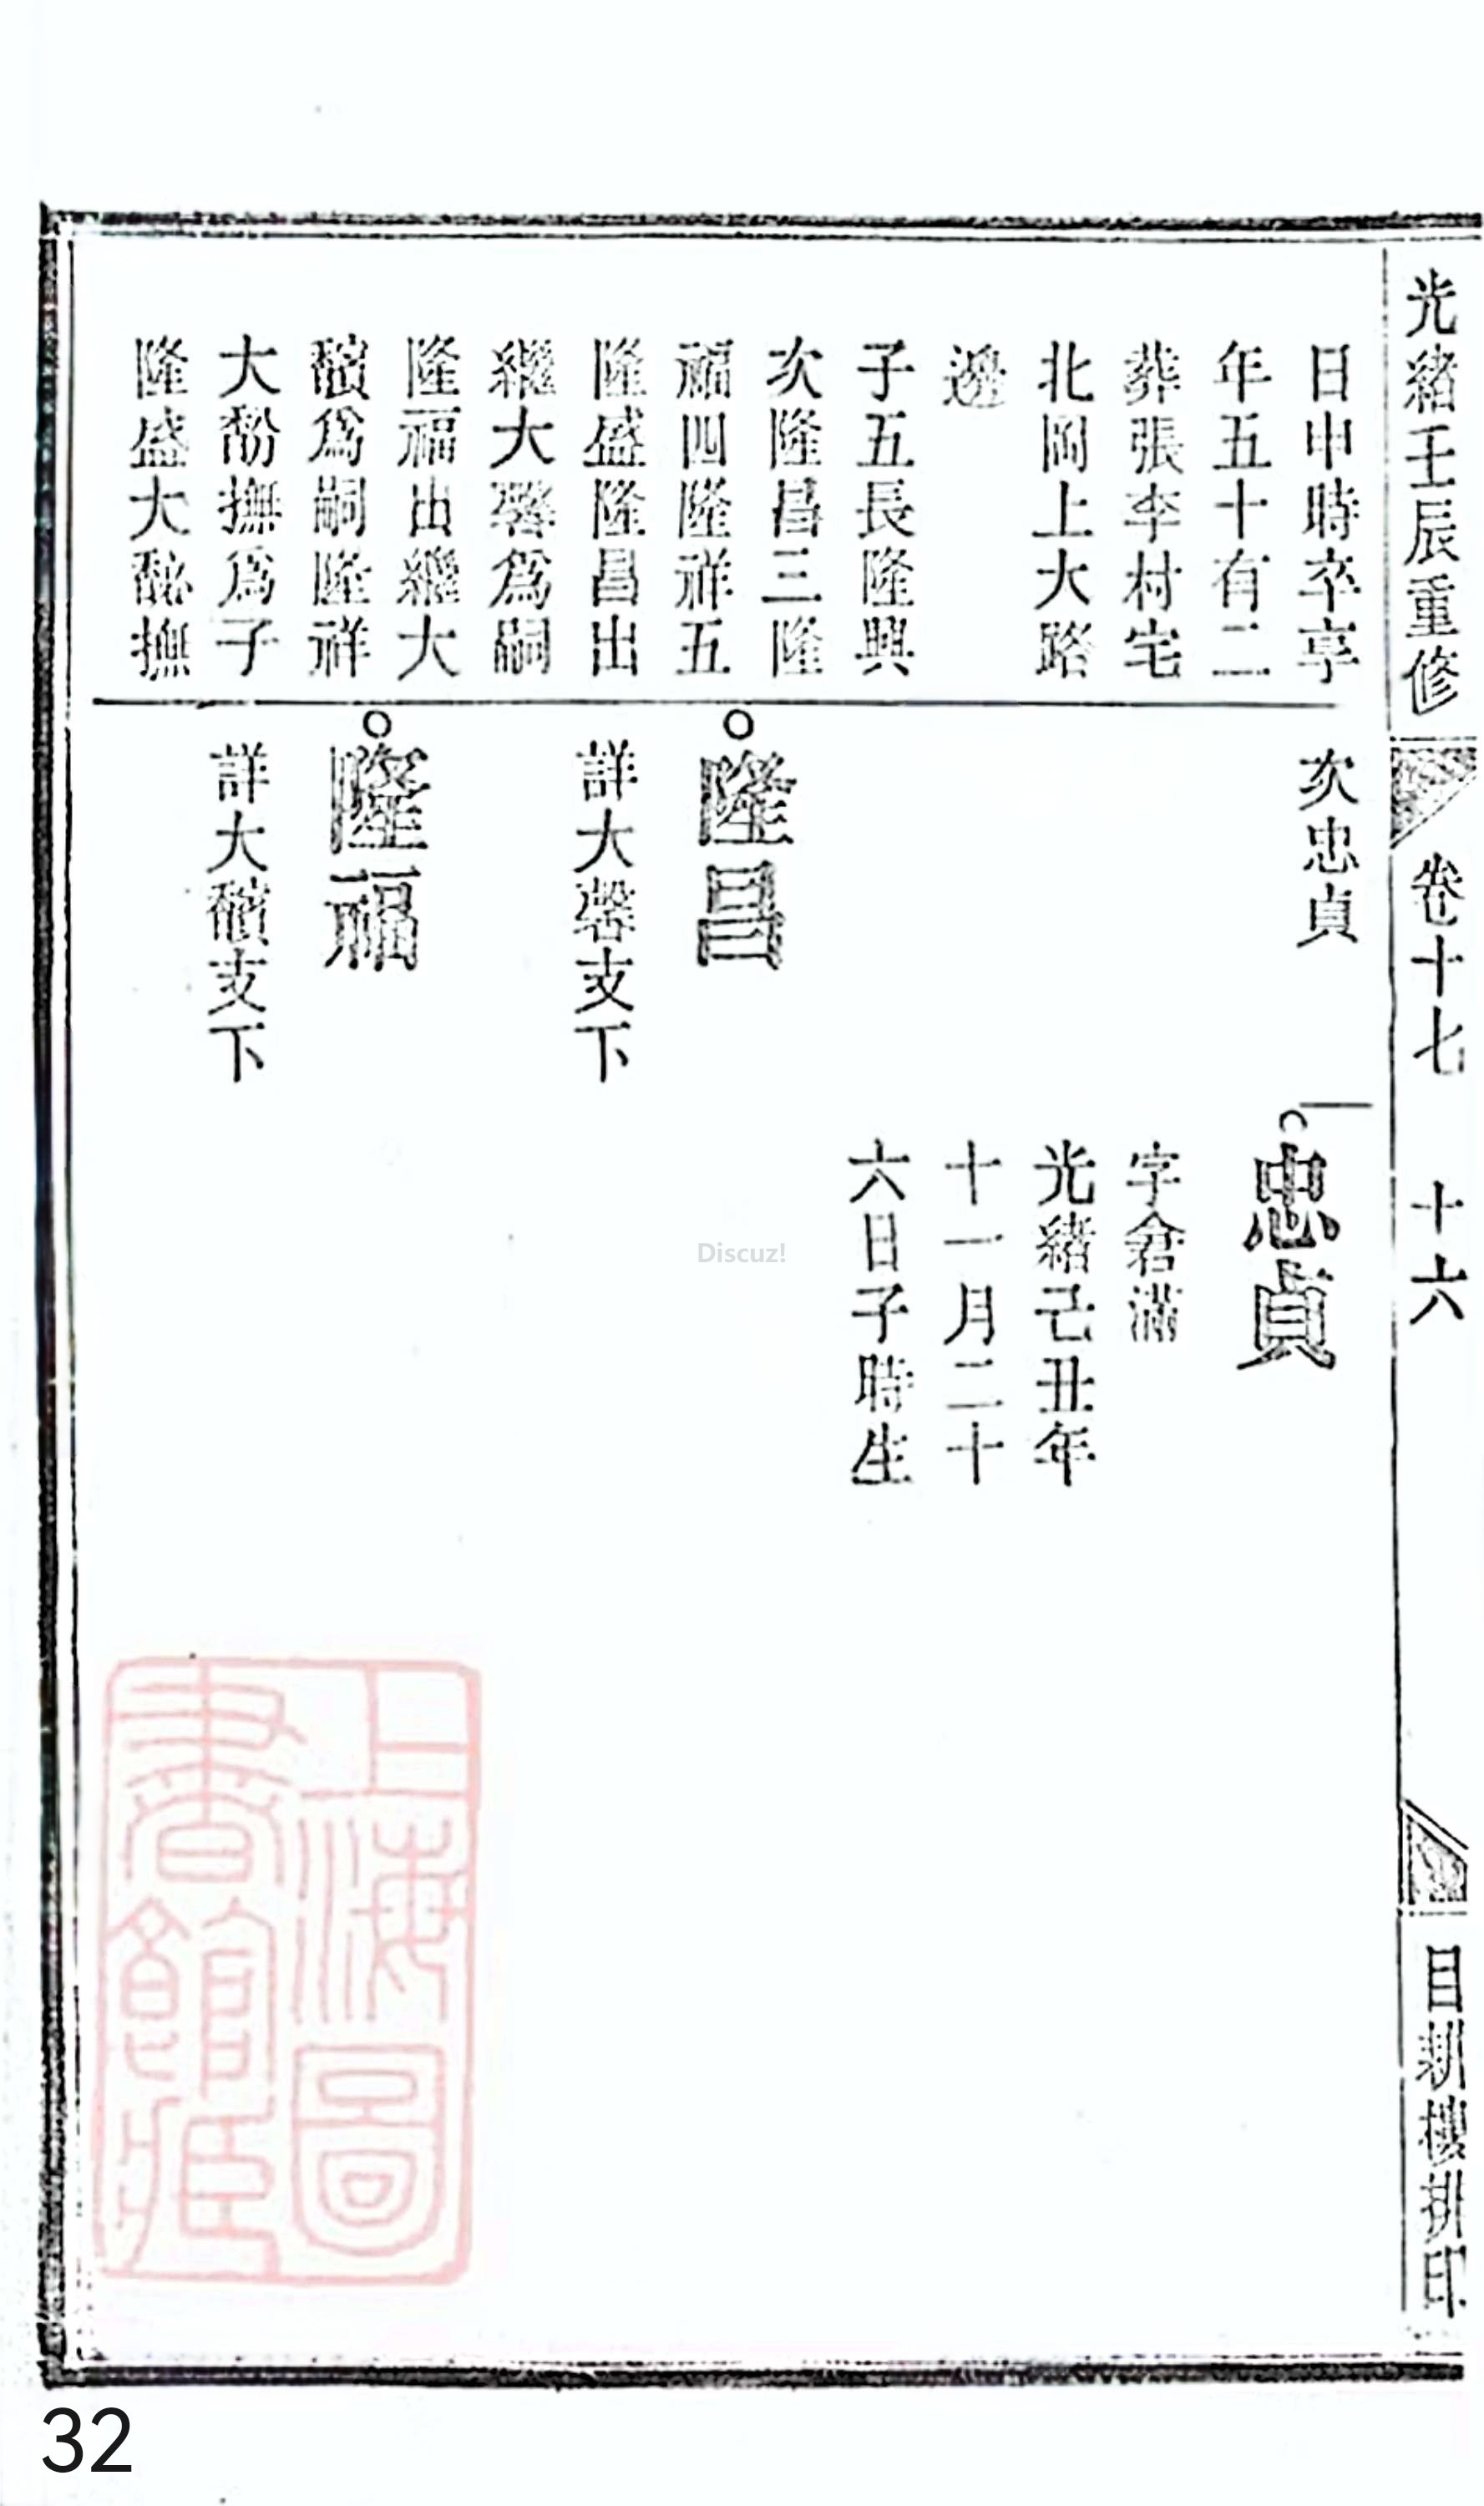 光緒壬辰重修
卷十七
十六
日新樓排印
日申時卒享
年五十有二
葬張李村宅
北岡上大路
邊
子五長隆興
次隆昌三隆
福四隆祥五
隆盛隆昌出
繼大馨爲嗣
隆福出繼大
馩爲嗣隆祥
大馚撫爲子
隆盛大馝撫
次忠貞
隆昌
詳大馨支下
隆福
詳大馩支下
忠貞
字倉滿
光緒己丑年
十一月二十
六日子時生
上海圖
書館藏
Discuz!
32